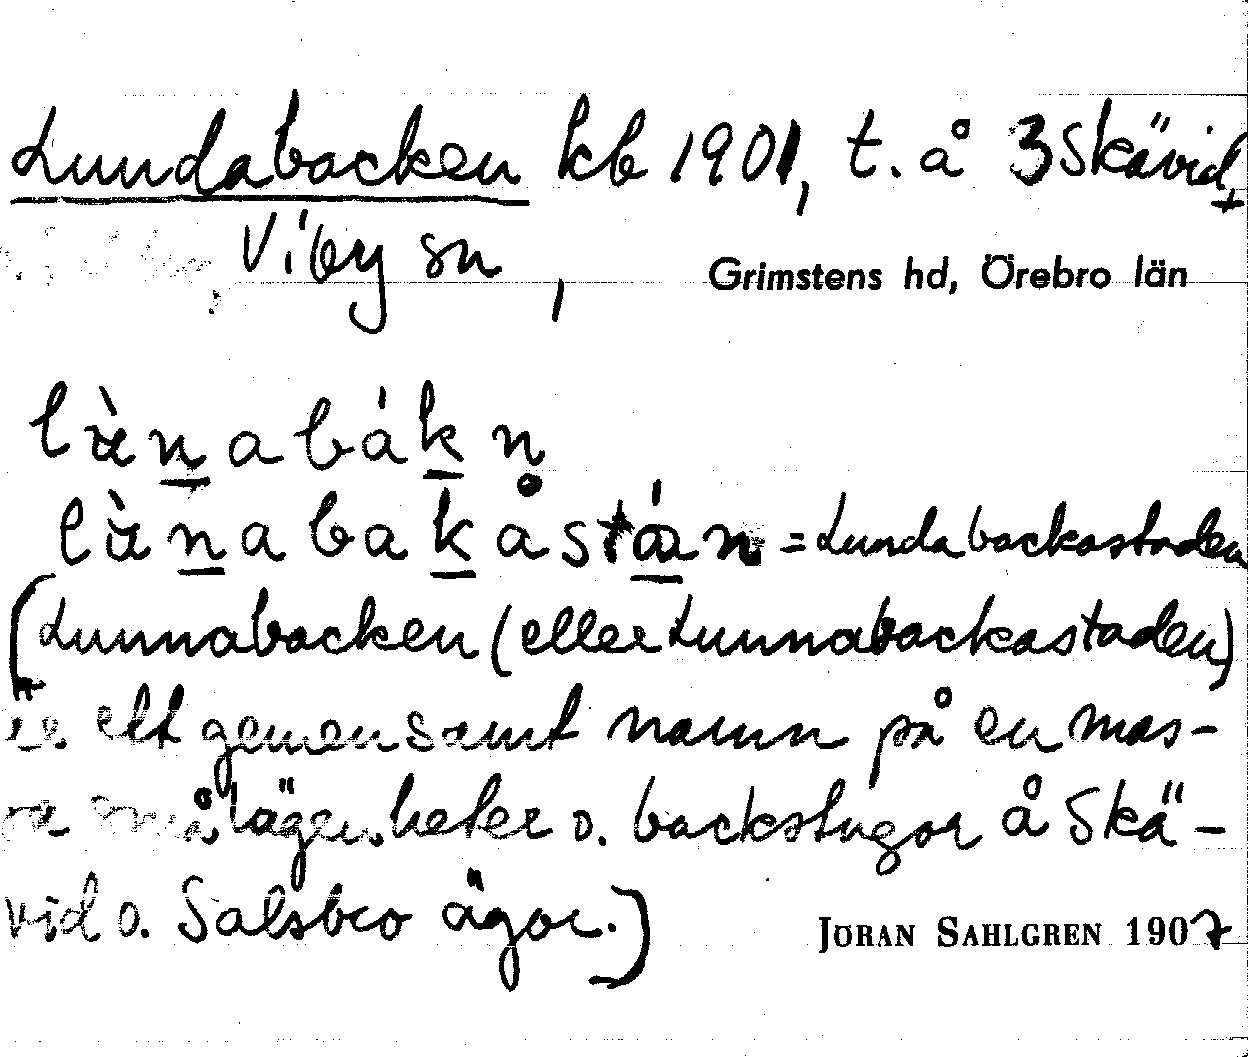 Lundabacken kb 1901, t. å 3 Skävid
Viby sn, Grimstens hd, Örebro län
lùnabákn
lùnabakåstán = Lundabackastaden
(Lunnabacken (eller Lunnabackastaden)
är ett gemensamt namn på en mas-
sa smålägenheter o. backstugor å Skä-
vid o. Salsbro ägor.)
JÖRAN SAHLGREN 1907